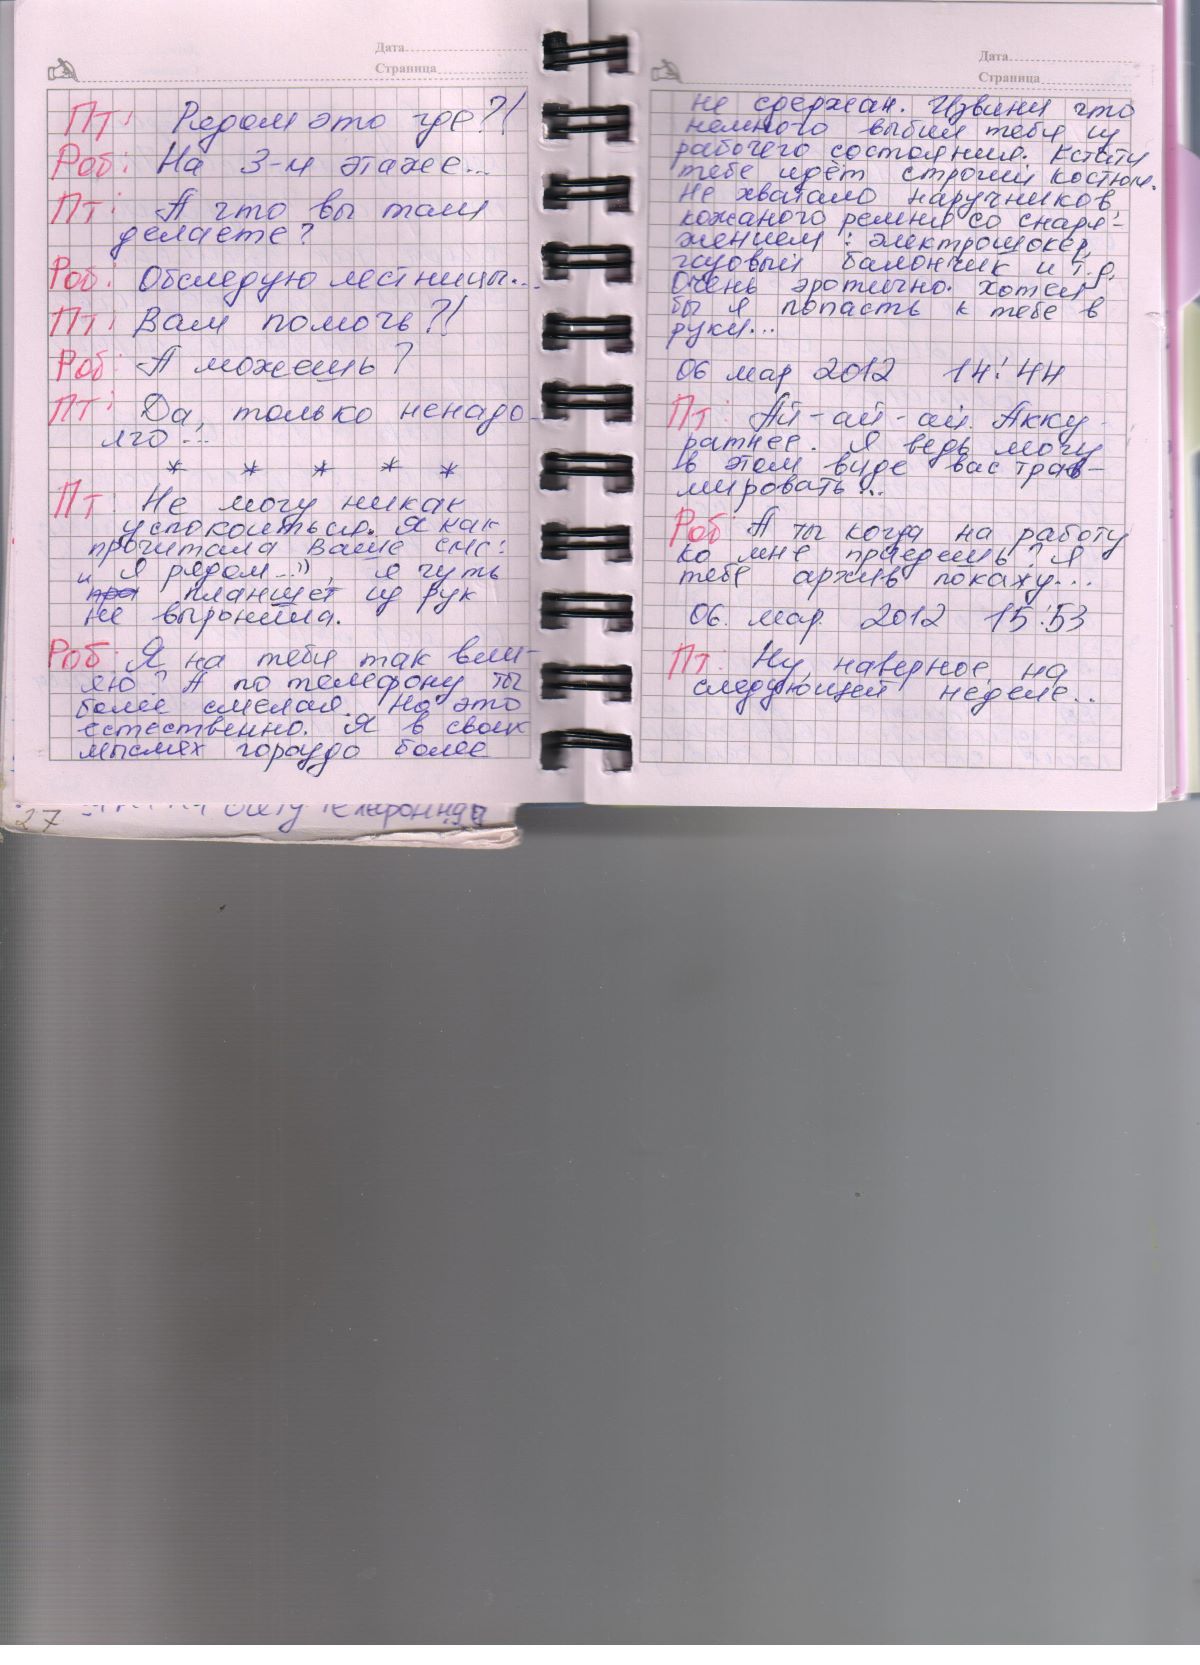 Дата
Страница
Пт: Рядом это где?!
Роб: На 3-м этаже...
Пт: А что вы там
делаете?
Роб: Обследую лестницы...
Пт: Вам помочь?!
Роб: А можешь?
Пт: Да, только ненадо-
лго...
* * * * *
Пт: Не могу никак
успокоиться. Я как
прочитала Ваше смс:
"Я рядом...)", я чуть
планшет из рук
не выронила.
Роб: Я на тебя так вли-
яю? А по телефону ты
более смелая. Но это
естественно. Я в своих
мыслях гораздо более
27
Дата
Страница
не сдержан. Извини что
немного выбил тебя из
рабочего состояния. Кстати
тебе идёт строгий костюм.
Не хватало наручников,
кожаного ремня со снаря-
жением: электрошокер,
газовый балончик и т.д.
Очень эротично. Хотел
бы я попасть к тебе в
руки...
06 мар 2012 14:44
Пт: Ай-ай-ай. Акку-
ратнее. Я ведь могу
в этом виде вас трав-
мировать...
Роб: А ты когда на работу
ко мне приедешь? Я
тебе архив покажу...
06. мар. 2012 15:53
Пт: Ну, наверное, на
следующей неделе...